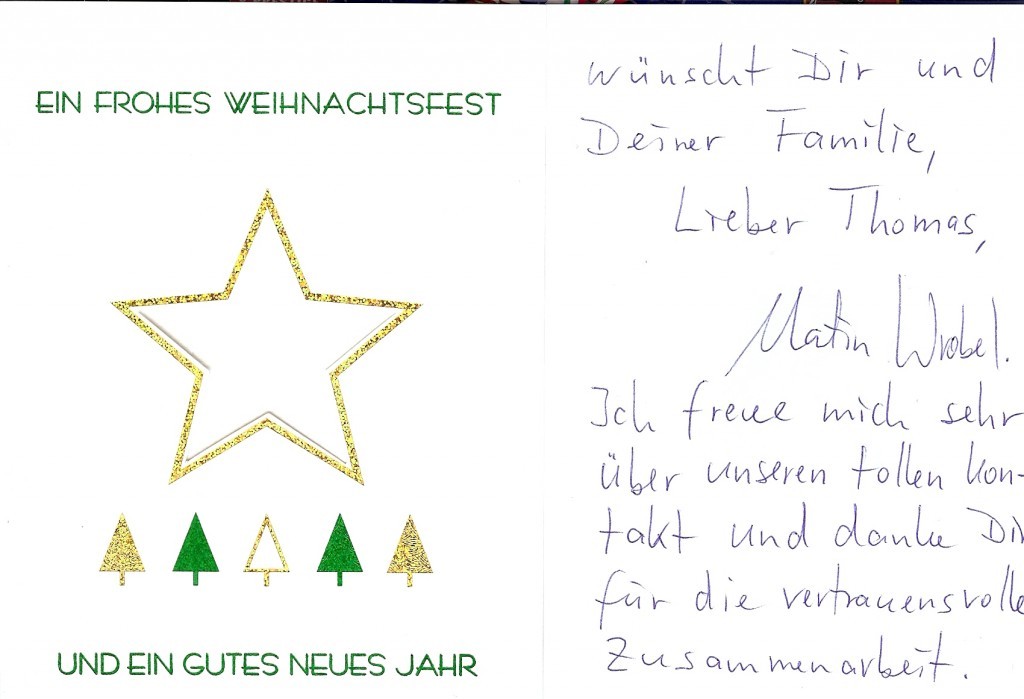 EIN FROHES WEIHNACHTSFEST
UND EIN GUTES NEUES JAHR
wünscht Dir und
Deiner Familie,
Lieber Thomas,
Matin Wrobel.
Ich freue mich sehr
über unseren tollen Kon-
takt und danke Dir
für die vertrauensvolle
Zusammenarbeit.